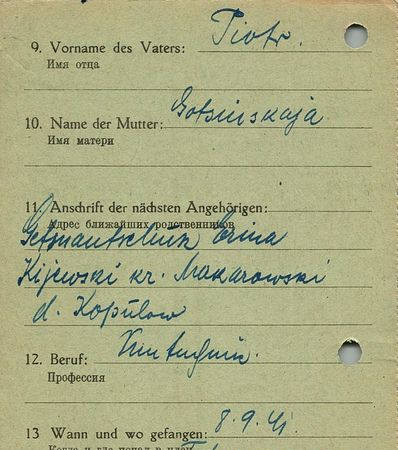 9. Vorname des Vaters: Piotr.
Имя отца
10. Name der Mutter: Gotsinskaja
Имя матери
11. Anschrift der nächsten Angehörigen:
Адрес ближайших родственников
Erina
Kijewski kr. Makarowski
d. Kopülow
12. Beruf:
Профессия
13 Wann und wo gefangen: 8.9.41.
Когда и где попал в плен